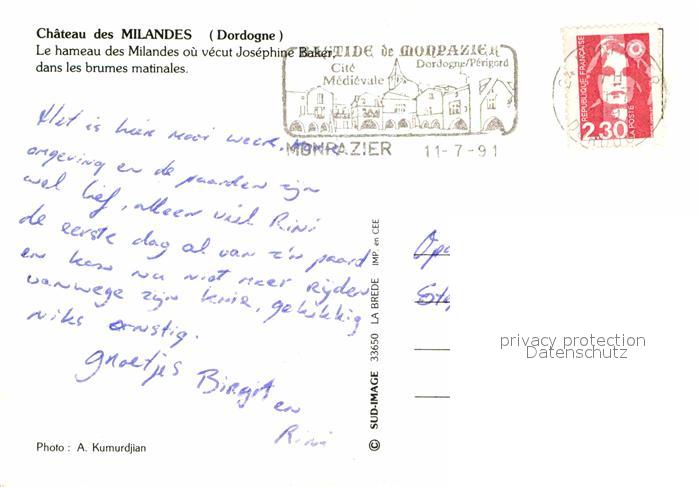 Château des MILANDES (Dordogne)
Le hameau des Milandes où vécut Joséphine Baker,
dans les brumes matinales.
BASTIDE de MONPAZIER
Cité
Médiévale
Dordogne/Périgord
MONPAZIER 11-7-91
REPUBLIQUE FRANÇAISE
2,30
LA POSTE
Het is hier mooi weer, mooie
omgeving en de paarden zijn
wel lief, alleen viel Rini
de eerste dag al van z'n paard
en kan nu niet meer rijden
vanwege zijn knie, gelukkig
niks ernstig.
Groetjes Birgit
en
Rini
Opa
privacy protection
Datenschutz
© SUD-IMAGE 33650 LA BREDE IMP. en CEE
Photo : A. Kumurdjian